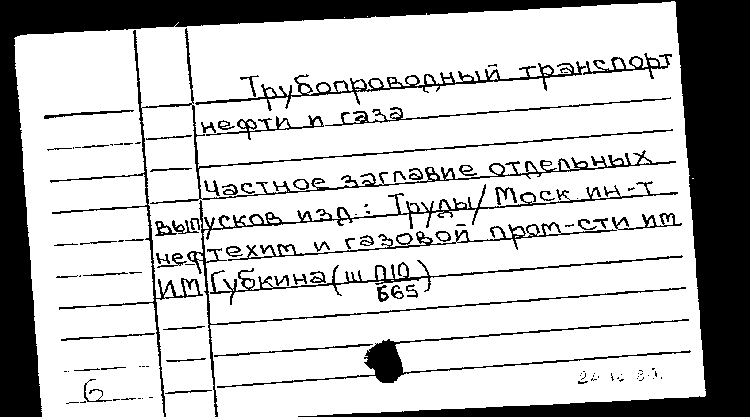 Трубопроводный транспорт
нефти и газа
Частное заглавие отдельных
выпусков изд.: Труды/Моск ин-т
нефтехим и газовой пром-сти им
ИМ Губкина (ш П10/Б65)
6